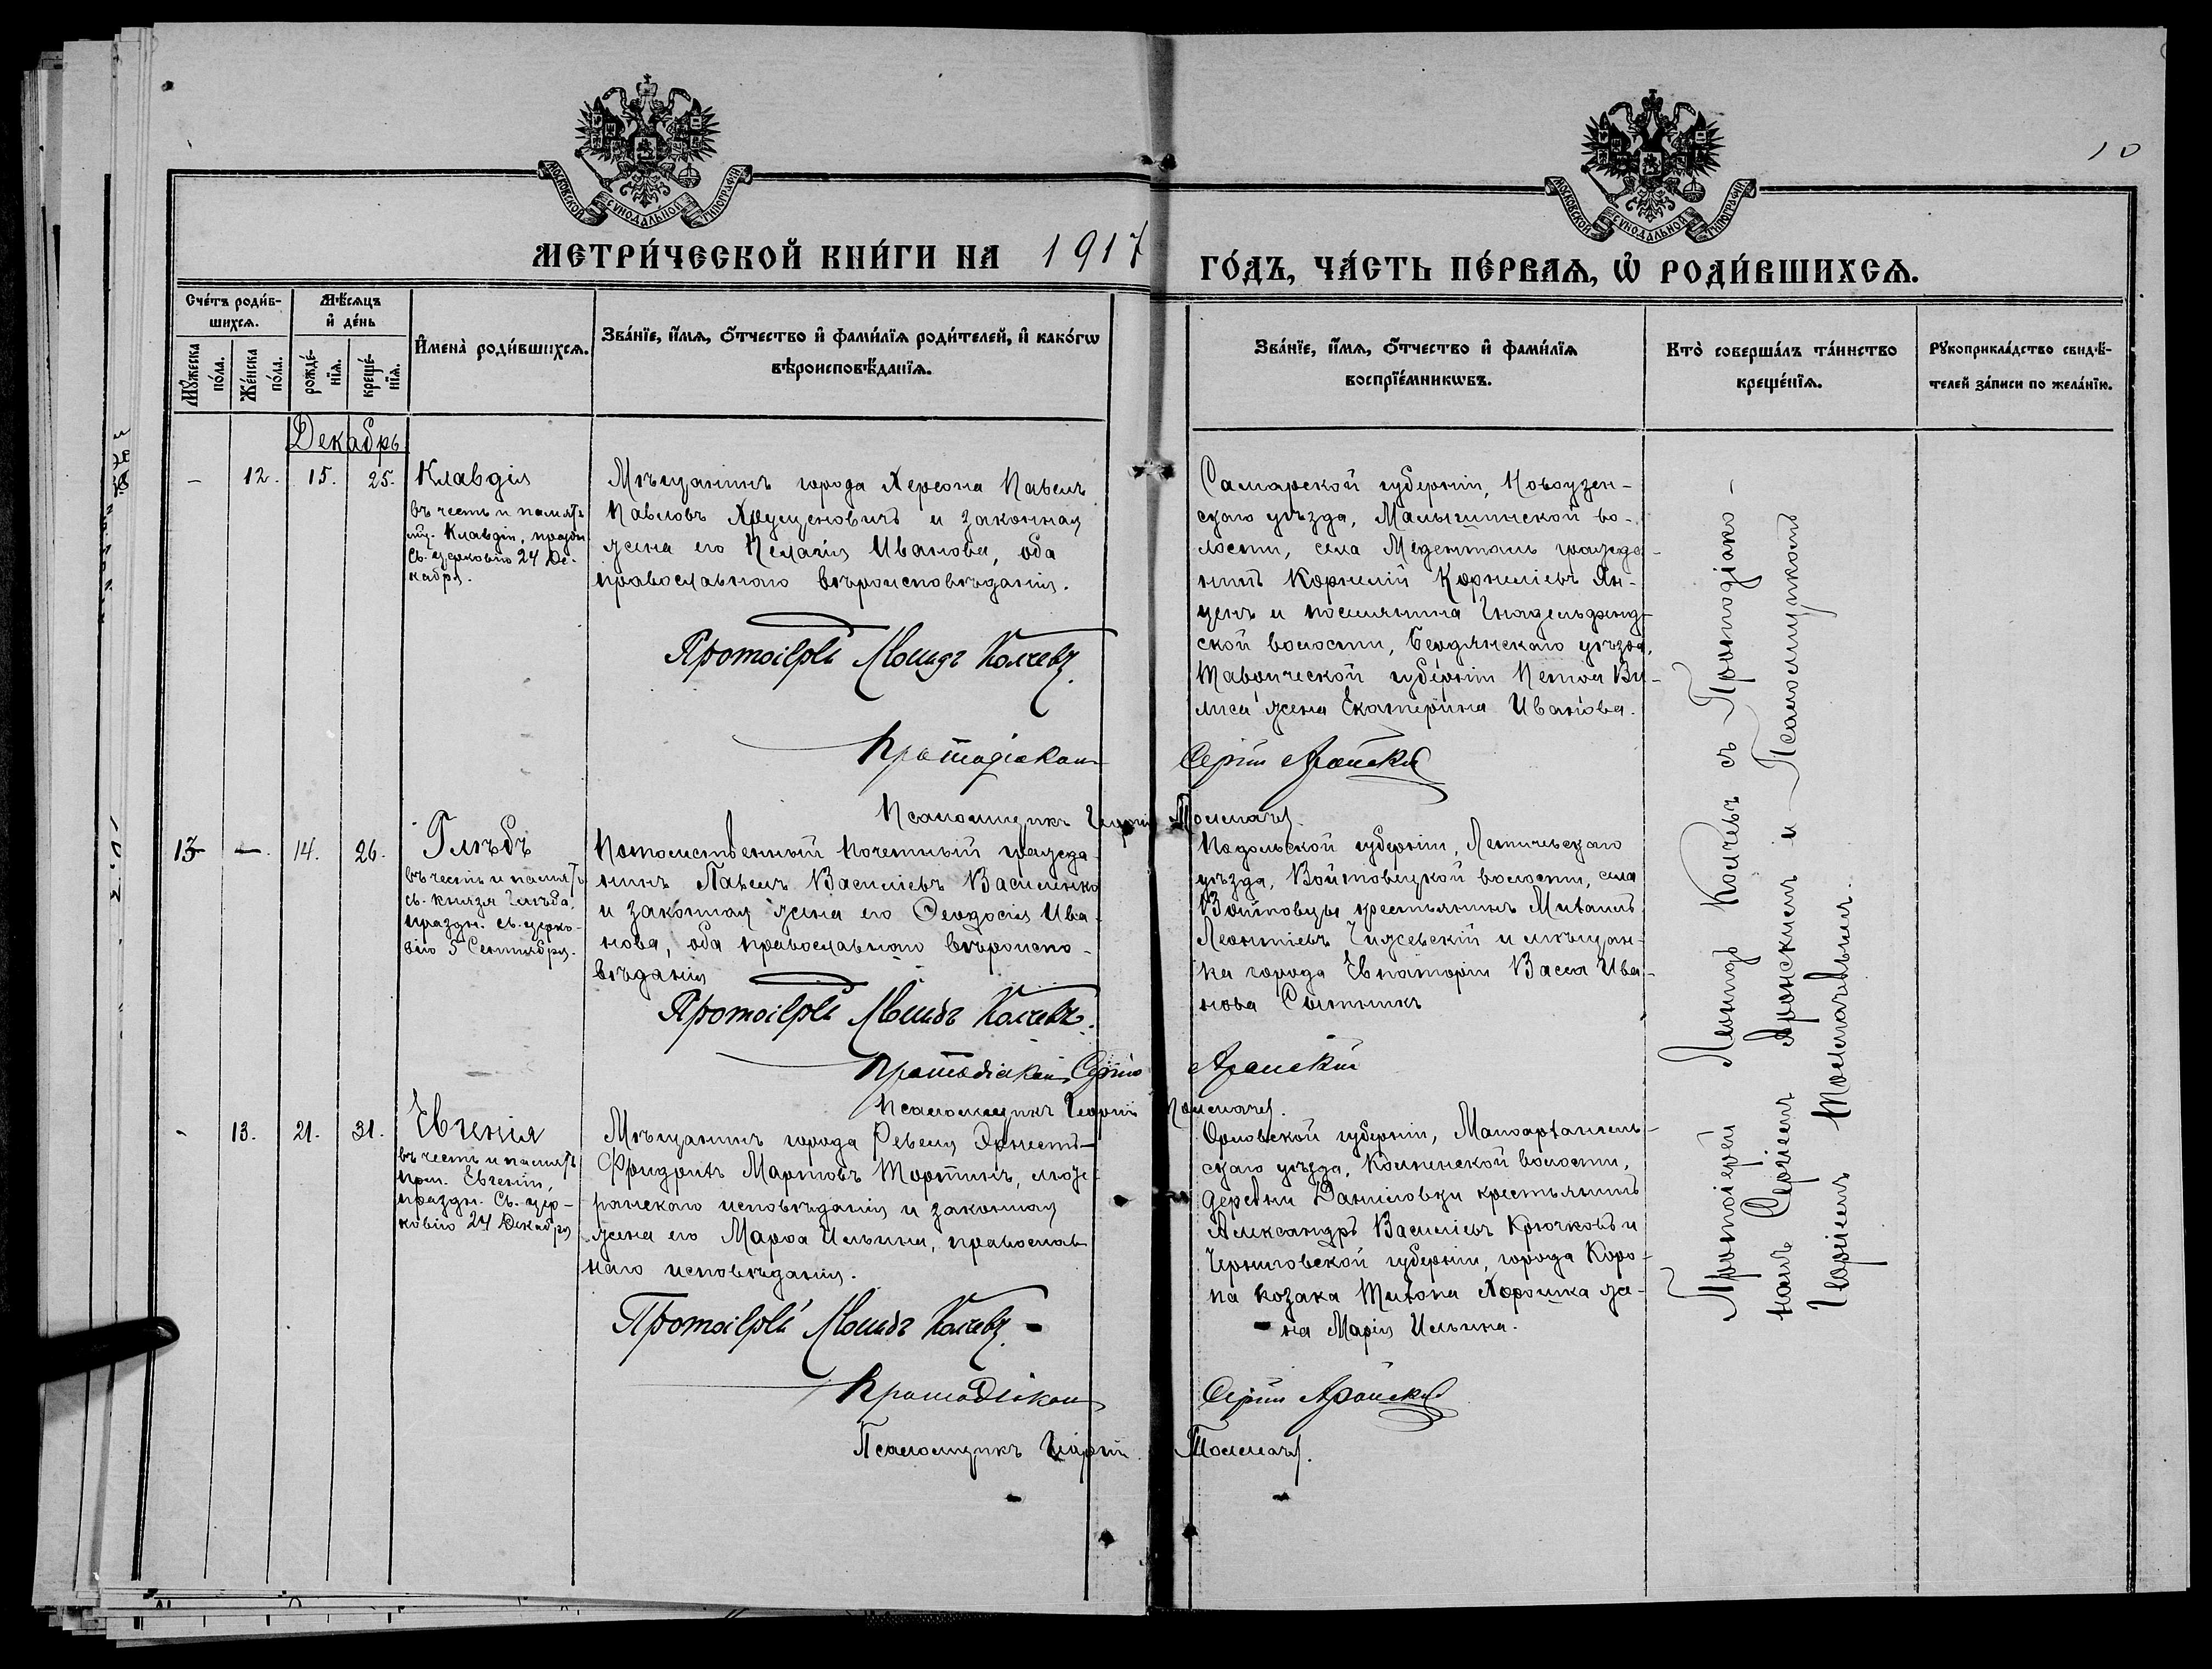 10
МОСКОВСКОЙ СѴНОДАЛЬНОЙ ТИПОГРАФІИ
МОСКОВСКОЙ СѴНОДАЛЬНОЙ ТИПОГРАФІИ
МЕТРИ́ЧЕСКОЙ КНИ́ГИ НА 1917
ГО́ДЪ, ЧА́СТЬ ПЕ́РВАѦ, Ѡ҆ РОДИ́ВШИХСѦ.
Сче́тъ роди́в-
шихсѧ.
Мꙋ́жеска
по́ла.
Же́нска
по́ла.
Мѣ́сѧцъ
и҆ де́нь
рожде́-
нїѧ.
креще́-
нїѧ.
И҆мена̀ роди́вшихсѧ.
Зва́нїе, и҆́мѧ, ѻ҆́тчество и҆ фами́лїѧ роди́телей, и҆ како́гѡ
вѣроисповѣ́данїѧ.
Зва́нїе, и҆́мѧ, ѻ҆́тчество и҆ фами́лїѧ
воспрїе́мникѡвъ.
Кто̀ соверша́лъ та́инство
креще́нїѧ.
Рꙋкоприкла́дство свидѣ́-
телей за́писи по жела́нїю.
Декабрь
- 12. 15. 25.
Клавдія
въ честь и память
мц. Клавдіи, праздн.
Св. церковію 24 Де-
кабря.
Мѣщанинъ города Херсона Павелъ
Павловъ Хрущеновичъ и законная
жена его Пелагія Иванова, оба
православнаго вѣроисповѣданія.
Протоіерей Леонидъ Колчевъ.
Протодіаконъ
Псаломщикъ Георгій
Самарской губерніи, Новоузен-
скаго уѣзда, Малышинской во-
лости, села Медемталь гражда-
нинъ Корнелій Корнеліевъ Ян-
ценъ и поселянина Гнадельфинд-
ской волости, Бердянскаго уѣзда,
Таврической губерніи Петра Ви-
лиса жена Екатерина Иванова.
Сергій Аронскій
Толмачев.
13 - 14. 26.
Глѣбъ
въ честь и память
св. князя Глѣба,
праздн. св. церко-
вію 5 Сентября.
Потомственный почетный гражда-
нинъ Павелъ Василіевъ Василенко
и законная жена его Ѳеодосія Ива-
нова, оба православнаго вѣроиспо-
вѣданія
Протоіерей Леонидъ Колчевъ.
Протодіаконъ Сергій
Псаломщикъ Георгій
Подольской губерніи, Летичевскаго
уѣзда, Войтовецкой волости, села
Войтовцы крестьянинъ Михаилъ
Леонтіевъ Чижевскій и мѣщан-
ка города Евпаторіи Васса Ива-
нова Сытникъ
Аронскій
Толмачев.
- 13. 21. 31.
Евгенія
въ честь и память
прм. Евгеніи,
праздн. Св. цер-
ковію 24 Декабря
Мѣщанинъ города Ревеля Эрнестъ-
Фридрихъ Мартовъ Тортинъ, люте-
ранскаго исповѣданія и законная
жена его Марѳа Ильина, православ-
наго исповѣданія.
Протоіерей Леонидъ Колчевъ.
Протодіаконъ
Псаломщикъ Георгій
Орловской губерніи, Малоархангель-
скаго уѣзда, Колпенской волости,
деревни Даниловки крестьянинъ
Александръ Василіевъ Крючковъ и
Черниговской губерніи, города Коро-
па козака Тихона Хорошка же-
на Марія Ильина.
Сергій Аронскій
Толмачев.
Протоіерей Леонидъ Колчевъ съ Протодіако-
номъ Сергіемъ Аронскимъ и Псаломщикомъ
Георгіемъ Толмачевымъ.